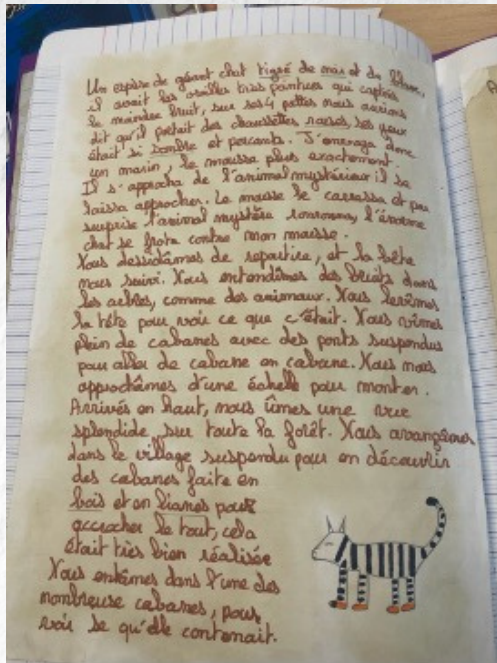 Un espèse de géant chat tigré de noir et du blanc,
il avait les oreilles très pointues qui captées
le moindre bruit, sur ses 4 pattes nous aurions
dit qu'il portait des chaussettes
était si sombre et perçants. J'envoya donc
un marin, le mousse plus exactement.
Il s'approcha de l'animal mystérieux il se
laissa approcher. Le mousse le caressa et par
surprise l'animal mystère ronronna, l'énorme
chat se frota contre mon mousse.
Nous dessidâmes de repartire, et la bête
nous suivi. Nous entendîmes des bruits dans
les arbres, comme des animaux. Nous levâmes
la tête pour voir ce que c'était. Nous vîmes
plein de cabanes avec des ponts suspendus
pour aller de cabane en cabane. Nous nous
approchâmes d'une échelle pour monter.
Arrivés en haut, nous ûmes une vue
splendide sur toute la forêt. Nous avançâmes
dans le village suspendu pour en découvrir
des cabanes faite en
bois et en lianes pour
accrocher le tout, cela
était très bien réalisée
Nous entrâmes dans l'une des
nombreuse cabanes, pour
voir se qu'elle contenait.